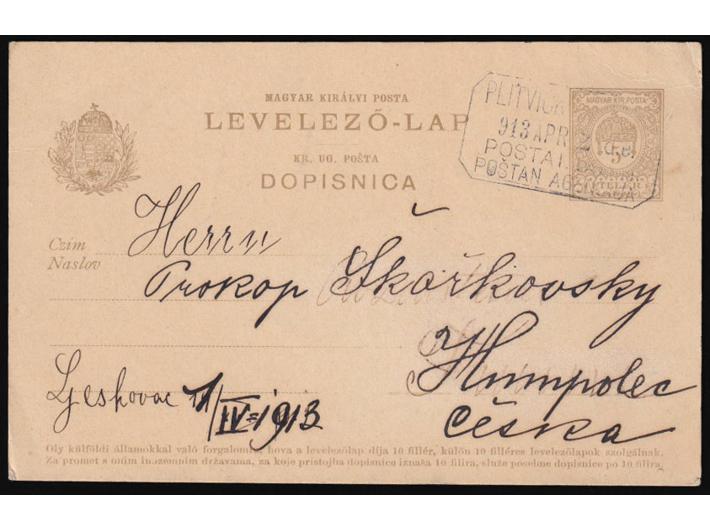 MAGYAR KIRÁLYI POSTA
LEVELEZŐ-LAP
KR. UG. POŠTA
DOPISNICA
913 APR
POSTAI
POŠTAN
MAGYAR KIR. POSTA
5
Czím
Naslov
Herrn
Prokop Škařkovsky
Humpolec
Češka
Ljeskovac
IV 1913
Oly külföldi államokkal való forgalomra, hova a levelezőlap díja 10 fillér, külön 10 filléres levelezőlapok szolgálnak.
Za promet s onim inozemnim državama, za koje pristojba dopisnice iznaša 10 filira, služe posebne dopisnice po 10 filira.